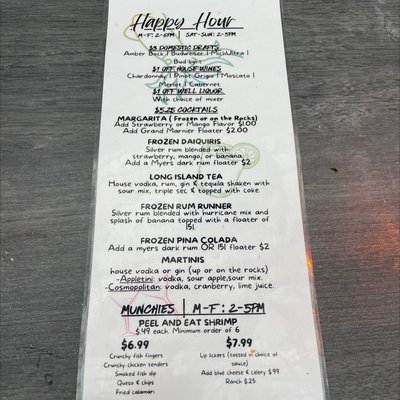 Happy Hour
M-F: 2-6PM | SAT-SUN: 2-5PM
$3 DOMESTIC DRAFTS
Amber Bock | Budweiser | Mich Ultra |
Bud Light
$1 OFF HOUSE WINES
Chardonnay | Pinot Grigio | Moscato |
Merlot | Cabernet
$1 OFF WELL LIQUOR
With choice of mixer
$5.25 COCKTAILS
MARGARITA ( Frozen or on the Rocks)
Add Strawberry or Mango Flavor $1.00
Add Grand Marnier Floater $2.00
FROZEN DAIQUIRIS
Silver rum blended with
strawberry, mango, or banana.
Add a Myers dark rum floater $2
LONG ISLAND TEA
House vodka, rum, gin & tequila shaken with
sour mix, triple sec & topped with coke.
FROZEN RUM RUNNER
Silver rum blended with hurricane mix and
splash of banana topped with a floater of
151.
FROZEN PINA COLADA
Add a myers dark rum OR 151 floater $2
MARTINIS
house vodka or gin (up or on the rocks)
-Appletini: vodka, sour apple,sour mix.
-Cosmopolitan: vodka, cranberry, lime juice.
MUNCHIES | M-F: 2-5PM
PEEL AND EAT SHRIMP
$.49 each. Minimum order of 6
$6.99
Crunchy fish fingers
Crunchy chicken tenders
Smoked fish dip
Queso & chips
Fried calamari
$7.99
Lip lickers (tossed in choice of
sauce)
Add blue cheese & celery $.99
Ranch $.25